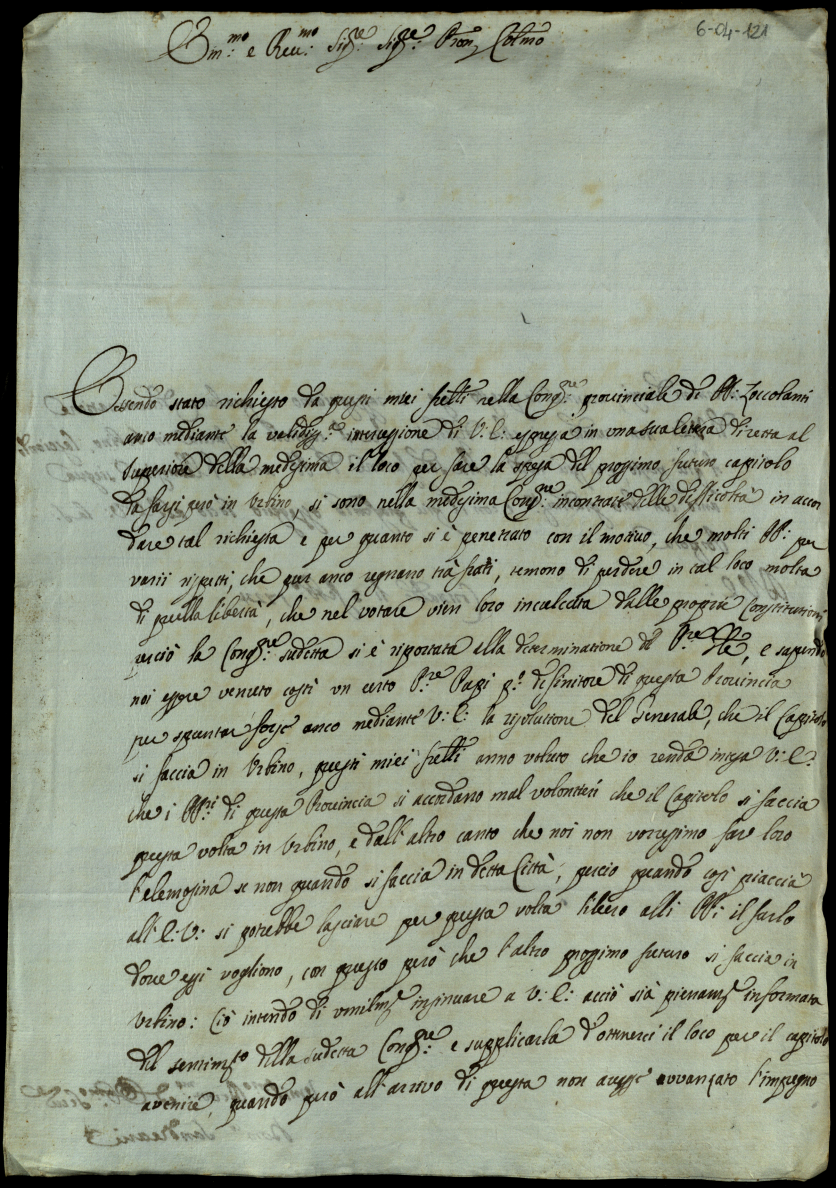 6-04-121
Em:mo e Reu:mo Sig:re Sig:re Pron Colmo
Essendo stato richiesto da questi miei frelli nella Cong:ne provinciale de PP: Zoccolanti
anco mediante la validiss:a intercessione di V: E: espressa in una sua lettera diretta al
Superiore della medesima il loco per fare la spesa del prossimo futuro capitolo
da farsi però in Urbino, si sono nella medesima Cong:ne incontrate delle difficoltà in accor
dare tal richiesta e per quanto si è penetrato con il motivo, che molti PP: per
varii rispetti, che pur anco regnano trà frati, temono di perdere in tal loco molta
di quella libertà, che nel votare vien loro inculcata dalle proprie Constitutioni
perciò la Cong:ne sudetta si è riportata alla determinatione del P:re Gle, e sapendo
noi essere venuto costì un certo P:re Papi p:o definitore di questa Provincia
per spuntar forse anco mediante V: E: la risolutione del Generale, che il Capitolo
si faccia in Urbino, questi miei frelli anno voluto che io renda intesa V: E:
che i PP:ri di questa Provincia si accordano mal volontieri che il Capitolo si faccia
questa volta in Urbino, e dall'altro canto che noi non vorressimo far loro
l'elemosina se non quando si faccia in detta Città, perciò quando così piaccia
all'E: V: si potrebbe lasciare per questa volta libero alli PP: il farlo
dove essi vogliono, con questo però che l'altro prossimo futuro si faccia in
Urbino: Ciò intendo di umilmte insinuare a V: E: acciò sia pienamte informata
del sentimto della sudetta Cong:ne e supplicarla d'ottenerci il loco per il capitolo
avenire, quando però all'arrivo di questa non avesse avvanzato l'impegno